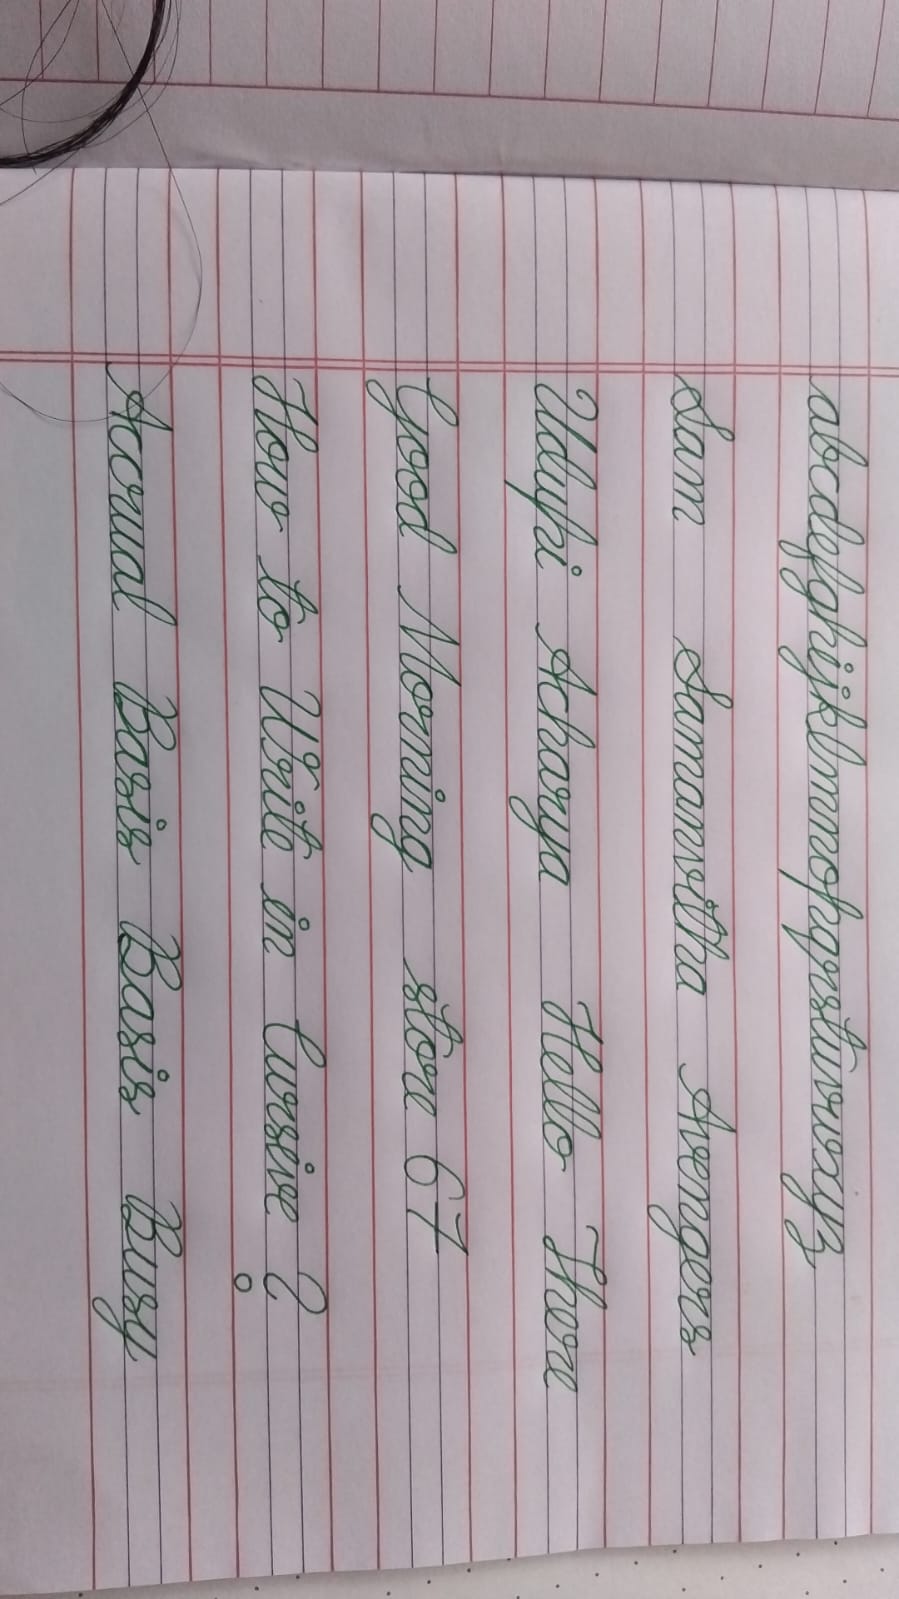 abcdefghijklmnopqrstuvwxyz
Sam Samanvitha Avengers
Udupi Acharya Hello There
Good Morning store 67
How to Write in Cursive ?
Accrual Basis Basis Busy